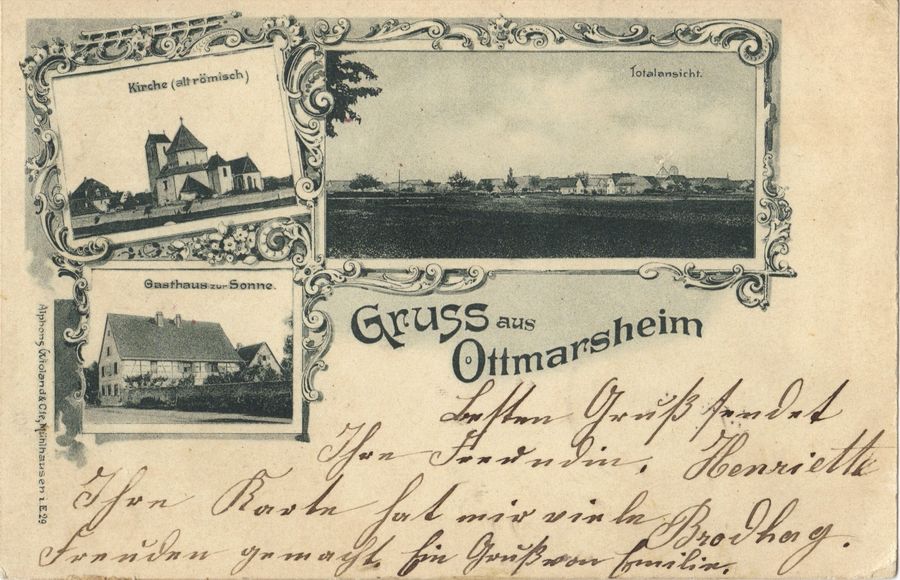 Kirche (alt römisch)
Totalansicht.
Gasthaus zur Sonne.
Gruss aus
Ottmarsheim
Alphons Gioland & Cie, Mühlhausen i. E. 29
besten Gruß sendet
Ihre Freundin. Henriette
Ihre Karte hat mir viele Brodhag.
Freuden gemacht. Ein Gruß von Emilie.